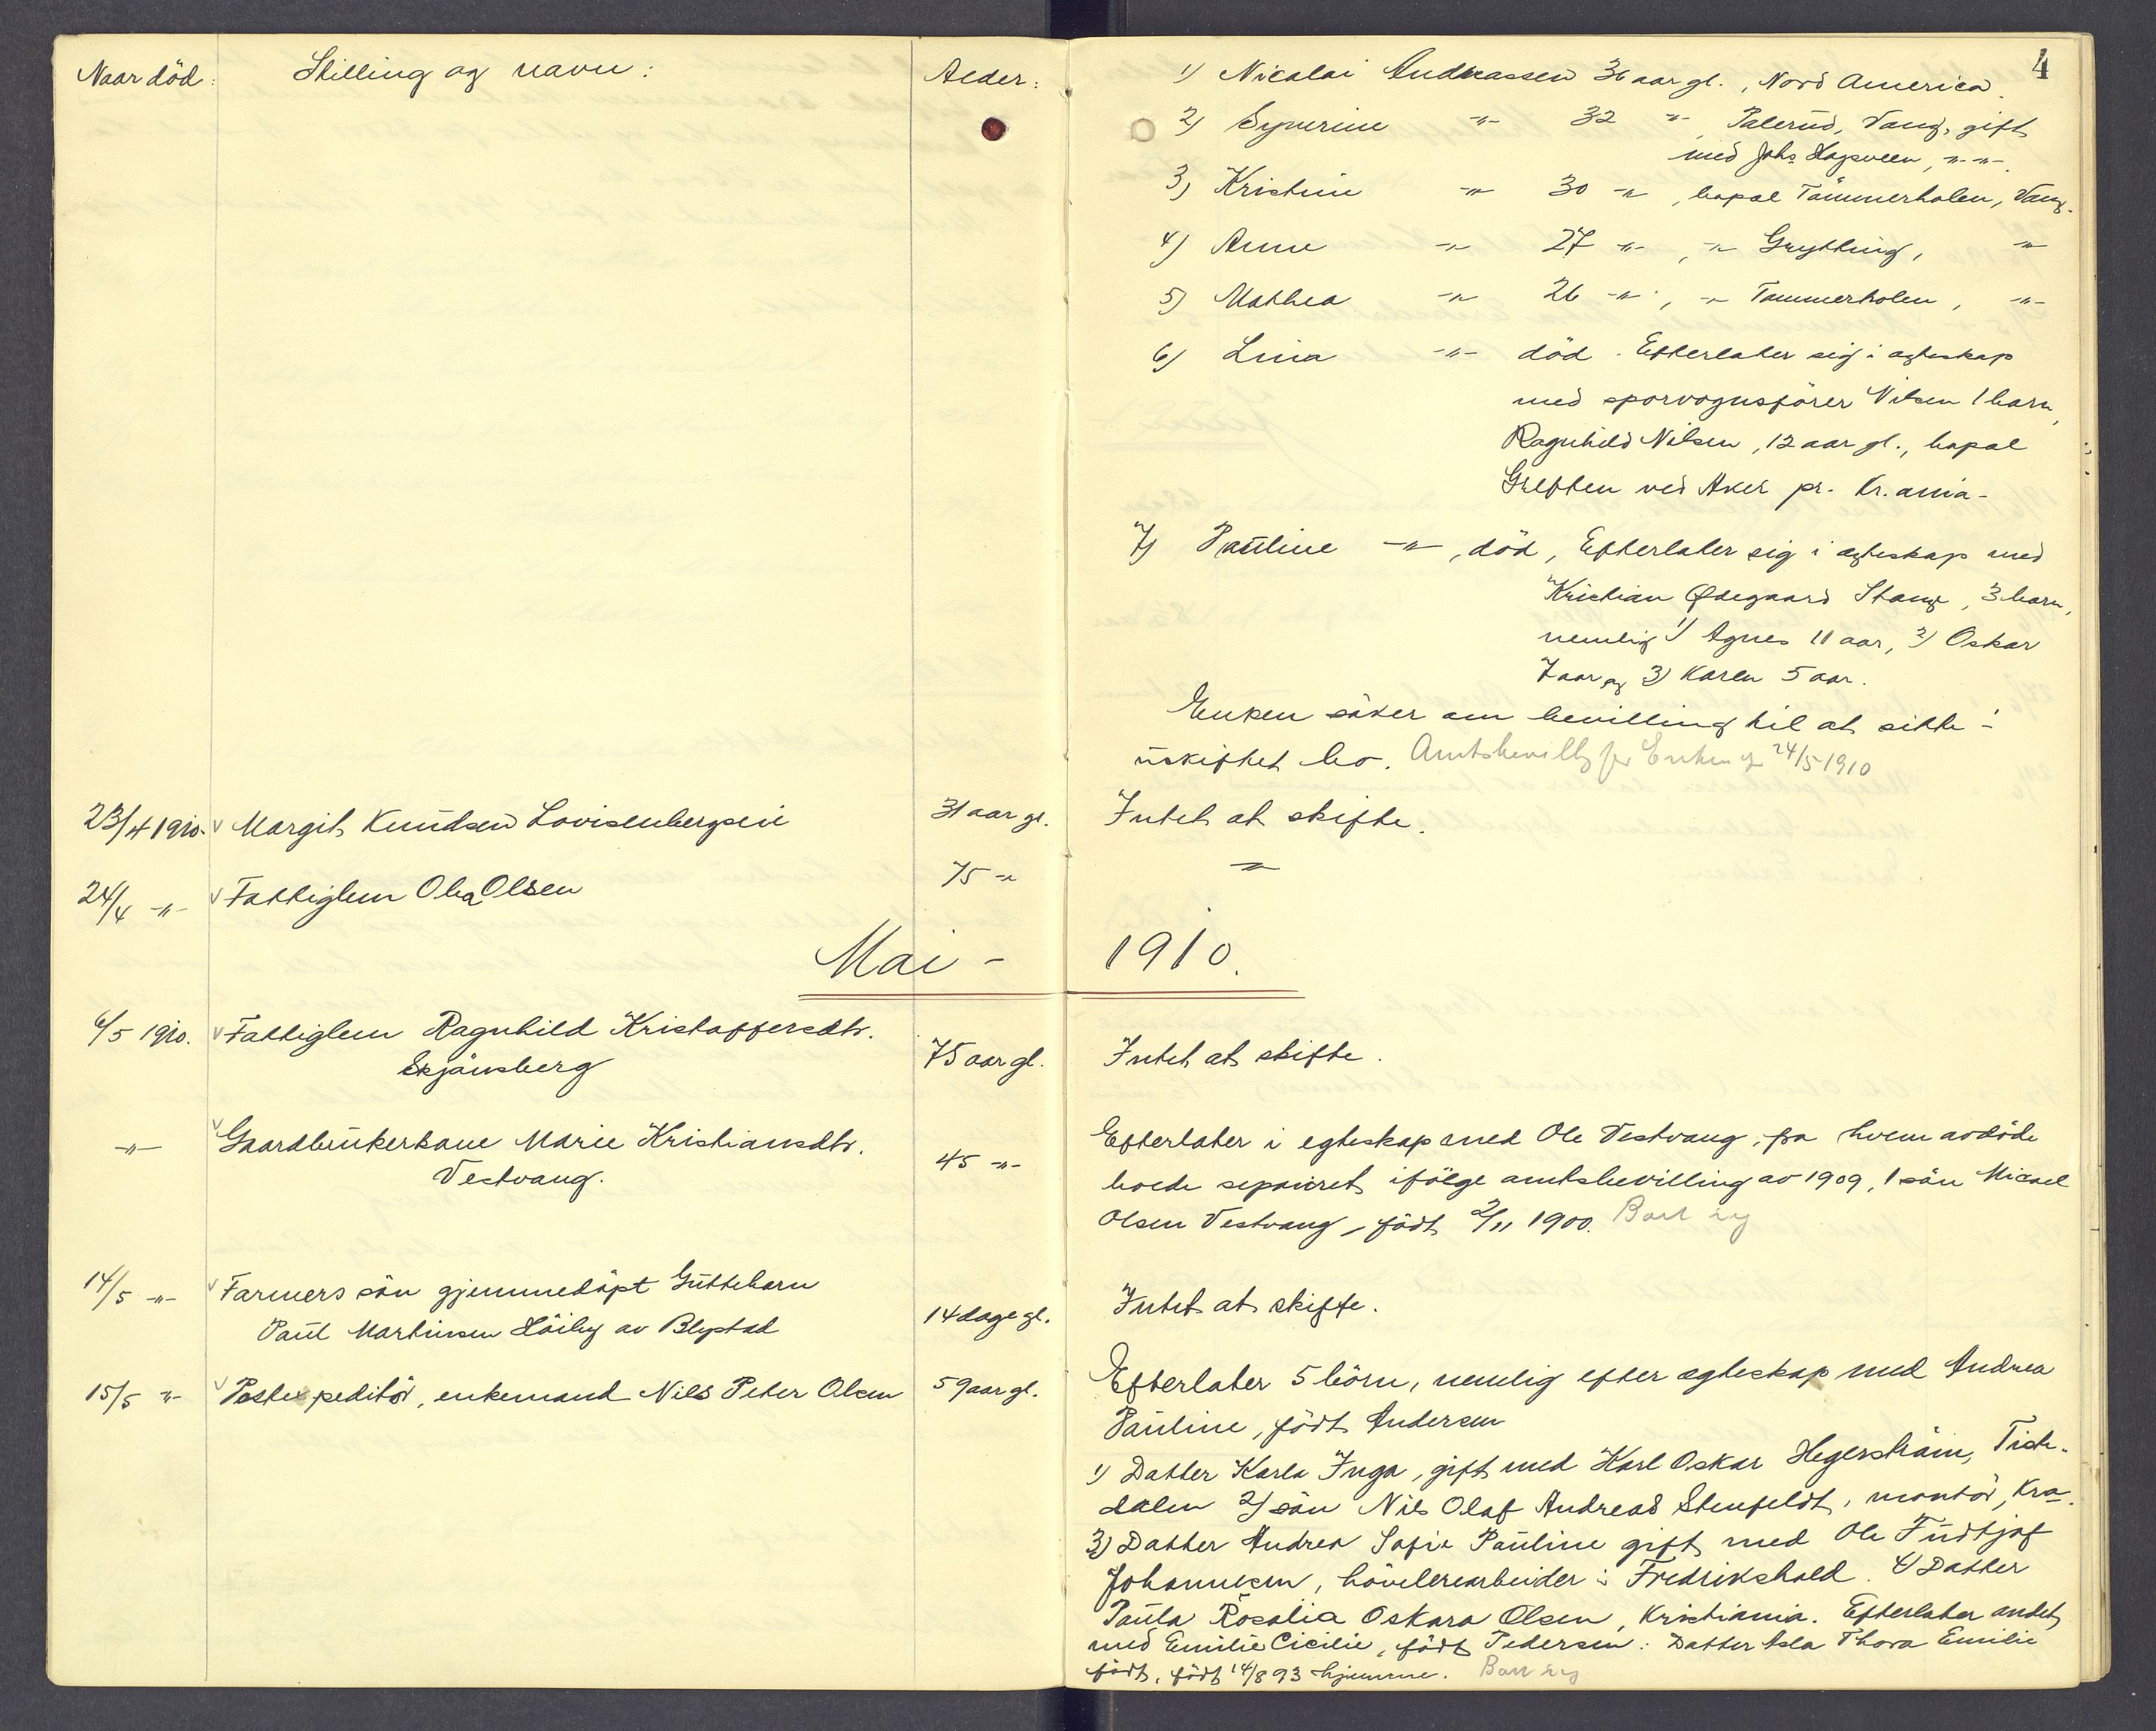 Naar död: Stilling og navn: Alder:
4
1) Nicolai Andreassen 36 aar gl., Nord America.
2) Syverine -"- 32 -"- Palerud, Vang, gift
med Johs Hagsveen, -"-"-
3) Kristine -"- 30 -"-, bopæl Tömmerholen, Vang.
4) Anne -"- 27 -"-, -"- Grytting, -"-
5) Mathea -"- 26 -"-, -"- Tommerholen, -"-
6) Lina -"- död. Efterlater sig i ægteskap
med sporvognsförer Nilsen 1 barn,
Ragnhild Nilsen, 12 aar gl., bopæl
Greften ved Aker pr. Kr.ania-
7) Pauline -"-, död, Efterlater sig i ægteskap med
Kristian Ødegaard Stange, 3 barn,
nemlig 1) Agnes 11 aar, 2) Oskar
7 aar og 3) Karen 5 aar.
Enken söker om bevilling til at sitte i
uskiftet bo. Amtsbevillg for Enken af 24/5 1910
23/4 1910. Margit Knudsen Lovisenbergsvei 31 aar gl. Intet at skifte.
24/4 -"- Fattiglem Olea Olsen 75 -"- -"-
Mai - 1910.
6/5 1910. Fattiglem Ragnhild Kristoffersdtr.
Skjönsberg 75 aar gl. Intet at skifte.
-"- Gaardbrukerkone Marie Kristiansdtr.
Vestvang. 45 -"-
Efterlater i egteskap med Ole Vestvang, fra hvem avdöde
levde separeret ifölge amtsbevilling av 1909, 1 sön Micael
Olsen Vestvang, födt 2/11 1900.
14/5 -"- Farmers sön hjemmedöpt Guttebarn
Paul Martinsen Höiby av Blystad 14 dage gl. Intet at skifte.
15/5 -"- Postexpeditör, enkemand Nils Peter Olsen 59 aar gl.
Efterlater 5 börn, nemlig efter ægteskap med Andrea
Pauline, födt Andersen
1) Datter Karla Inga, gift med Karl Oskar Hegerström, Tiste-
dalen 2) sön Nils Olaf Andreas Stenfeldt, montör, Kra.
3) Datter Andrea Sofie Pauline gift med Ole Fridtjof
Johannesen, hövlerearbeider i Fredrikshald. 4) Datter
Paula Rosalia Oskara Olsen, Kristiania. Efterlater andet
med Emilie Cicilie, födt Pedersen: Datter Asla Thora Emilie
födt, födt 14/8 93 hjemme.